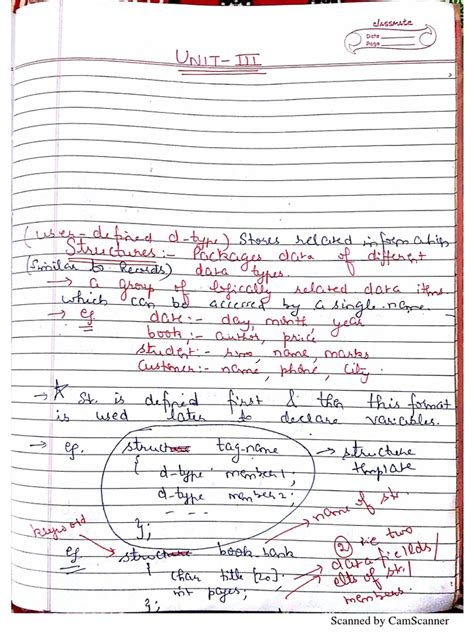 classmate
Date
Page
UNIT-III
(user-defined d-type) Stores related information
Structures:- Packages data of different
(Similar to Records) data types.
→ a group of logically related data items
which can be accessed by a single name.
→ eg. date:- day, month, year
book:- author, price
student:- rno, name, marks
Customer:- name, phone, city
→ ☆ St. is defined first & then this format
is used later to declare variables.
→ eg. struct tag-name → structure
{ d-type member1; template
d-type member2;
- - -
};
name of str.
keyword
eg struct book-bank
② ie two
{ char title [20]; data fields/
int pages; elts of str/
}; members.
Scanned by CamScanner